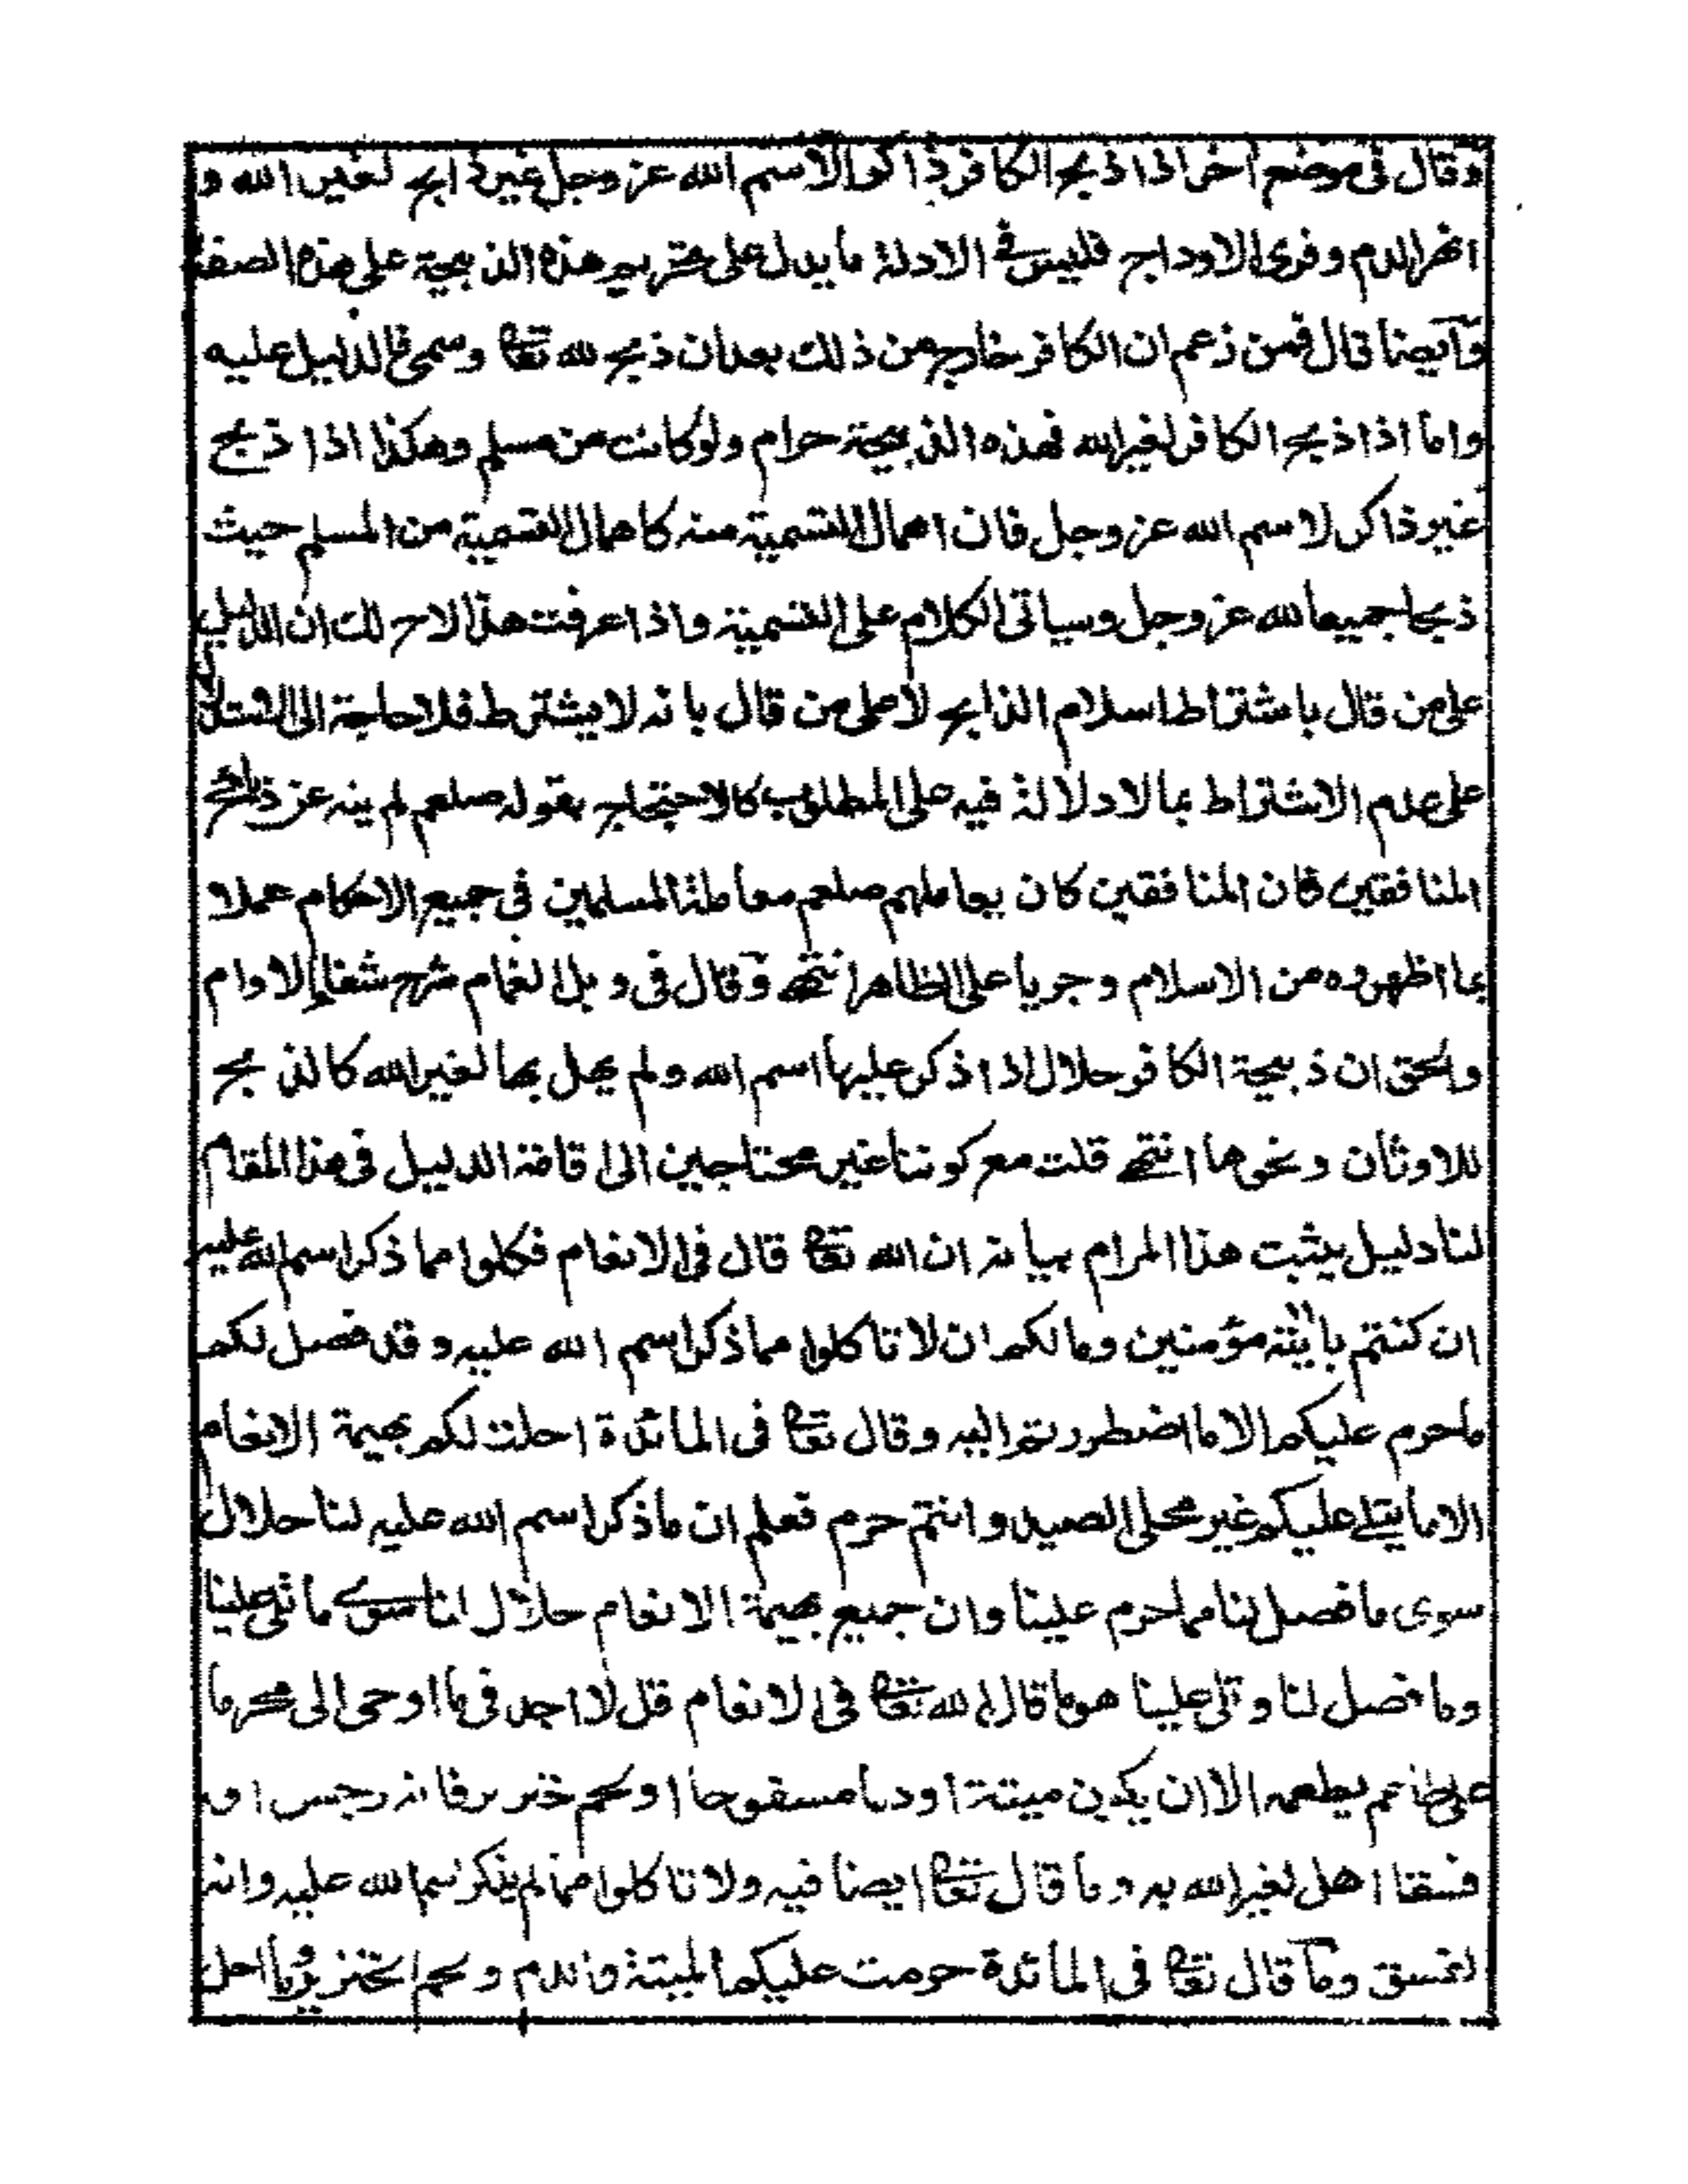 وقال فى موضع اخر اذا ذبح الكافر ذاكرا لاسم الله عز وجل غير ذابح لغير الله و
انهر الدم وفرى الاوداج فليس فى الادلة ما يدل على تحريم هذه الذبيحة على هذه الصفة
وايضا قال فمن زعم ان الكافر خارج من ذلك بعد ان ذبح لله تعالى وسمى فالدليل عليه
واما اذا ذبح الكافر لغير الله فهذه الذبيحة حرام ولو كانت من مسلم وهكذا اذا ذبح
غير ذاكر لاسم الله عز وجل فان اهمال التسمية منه كاهمال التسمية من المسلم حيث
ذبحا جميعا لله عز وجل وسياتى الكلام على التسمية واذا عرفت هذا لاح لك ان الدليل
على من قال باشتراط اسلام الذابح لا على من قال بانه لا يشترط فلا حاجة الى الاستدلال
على عدم الاشتراط بما لا دلالة فيه على المطلوب كالاحتجاج بقوله صلعم لم ينه عن ذبائح
المنافقين فان المنافقين كان يعاملهم صلعم معاملة المسلمين فى جميع الاحكام عملا
بما اظهروه من الاسلام وجريا على الظاهر انتهى وقال فى وبل الغمام شرح شفاء الاوام
والحق ان ذبيحة الكافر حلال اذا ذكر عليها اسم الله ولم يهل بها لغير الله كالذبح
للاوثان ونحوها انتهى قلت مع كوننا غير محتاجين الى اقامة الدليل فى هذا المقام
لنا دليل يثبت هذا المرام بيانه ان الله تعالى قال فى الانعام فكلوا مما ذكر اسم الله عليه
ان كنتم باياته مؤمنين وما لكم ان لا تاكلوا مما ذكر اسم الله عليه وقد فصل لكم
ما حرم عليكم الا ما اضطررتم اليه وقال تعالى فى المائدة احلت لكم بهيمة الانعام
الا ما يتلى عليكم غير محلى الصيد وانتم حرم فعلم ان ما ذكر اسم الله عليه لنا حلال
سوى ما فصل لنا مما حرم علينا وان جميع بهيمة الانعام حلال لنا سوى ما تلى علينا
وما فصل لنا وتلى علينا هو ما قال الله تعالى فى الانعام قل لا اجد فى ما اوحى الى محرما
على طاعم يطعمه الا ان يكون ميتة او دما مسفوحا او لحم خنزير فانه رجس او
فسقا اهل لغير الله به وما قال تعالى ايضا فيه ولا تاكلوا مما لم يذكر اسم الله عليه وانه
لفسق وما قال تعالى فى المائدة حرمت عليكم الميتة والدم ولحم الخنزير وما اهل